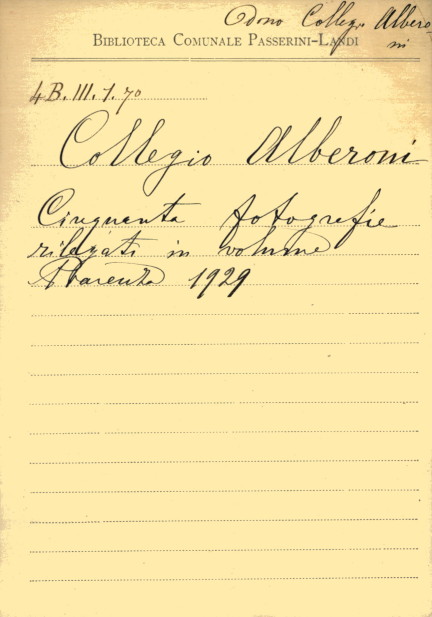 dono Collegio Albero
ni
Biblioteca Comunale Passerini-Landi
4 B. III. 1. 70
Collegio Alberoni
Cinquanta fotografie
rilegati in volume
Piacenza 1929